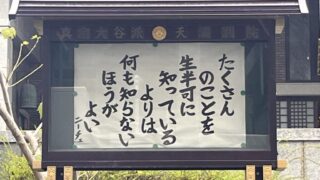 真宗大谷派 天満別院
たくさん
のことを
生半可に
知っている
よりは
何も知らない
ほうが
よい
ニーチェ